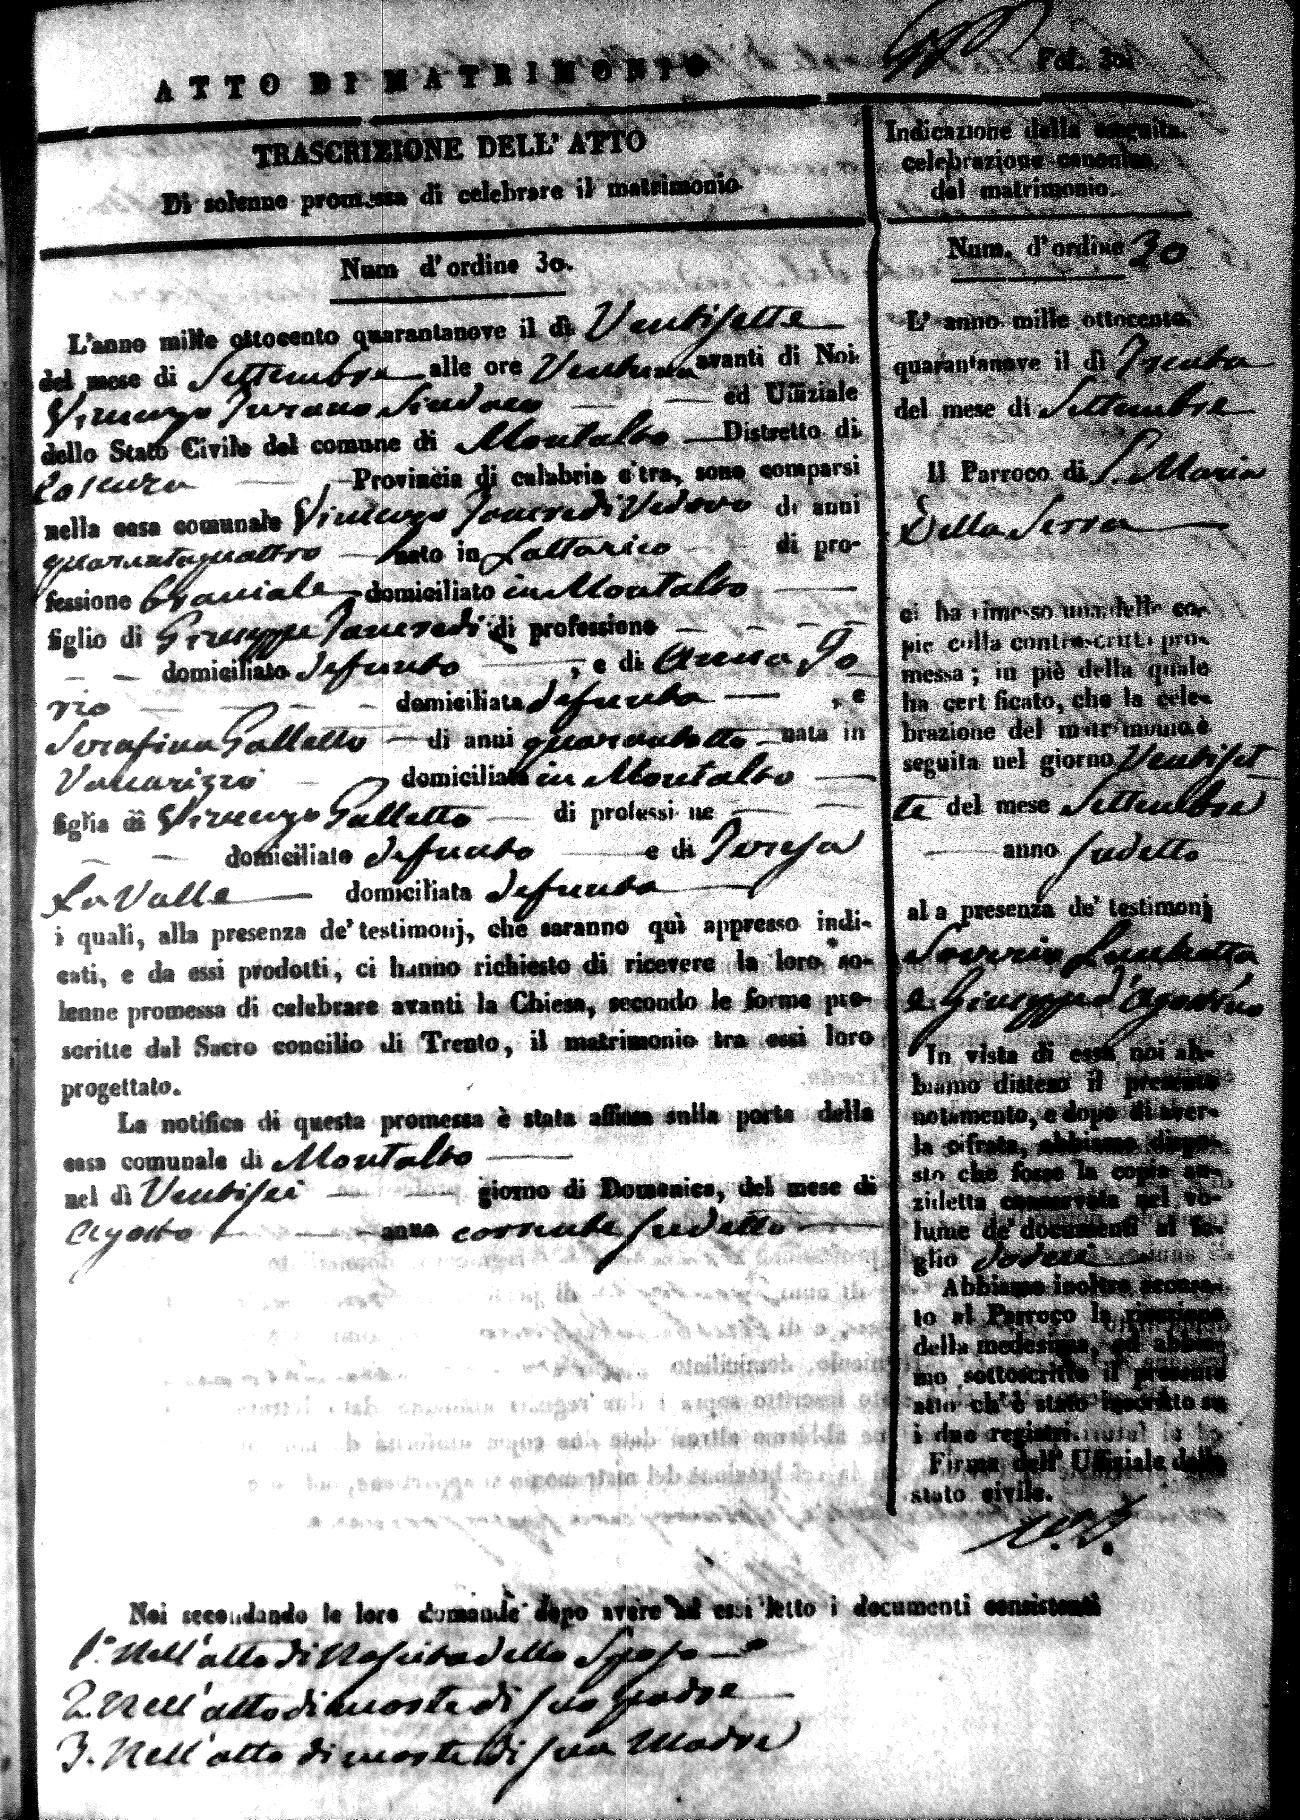 Fol. 30.
ATTO DI MATRIMONIO
TRASCRIZIONE DELL' ATTO
Di solenne promessa di celebrare il matrimonio
Num d'ordine 30.
L'anno mille ottocento quarantanove il dì Ventisette
del mese di Settembre alle ore Ventuna avanti di Noi
Vincenzo Turano Sindaco ed Uffiziale
dello Stato Civile del comune di Montalto Distretto di
Cosenza Provincia di calabria citra, sono comparsi
nella casa comunale Vincenzo Tancredi Vedovo di anni
quarantaquattro nato in Lattarico di pro-
fessione Braciale domiciliato in Montalto
figlio di Giuseppe Tancredi di professione
domiciliato defunto , e di Anna Io
rio domiciliata defunta , e
Serafina Galletto di anni quarantotto nata in
Vaccarizzo domiciliata in Montalto
figlia di Vincenzo Galletto di professi ne
domiciliato defunto e di Teresa
La Valle domiciliata defunta
i quali, alla presenza de' testimonj, che saranno quì appresso indi-
cati, e da essi prodotti, ci hanno richiesto di ricevere la loro so-
lenne promessa di celebrare avanti la Chiesa, secondo le forme pre-
scritte dal Sacro concilio di Trento, il matrimonio tra essi loro
progettato.
La notifica di questa promessa è stata affissa sulla porta della
casa comunale di Montalto
nel dì Ventisei giorno di Domenica, del mese di
Agosto anno corrente sudetto
Noi secondando le loro domande dopo avere ad essi letto i documenti consistenti
1.° Nell'atto di Nascita dello Sposo
2. Nell'atto di morte di suo padre
3. Nell'atto di morte di sua Madre
Indicazione della seguita
celebrazione canonica
del matrimonio.
Num. d'ordine 30
L' anno mille ottocento
quarantanove il dì Trenta
del mese di Settembre
Il Parroco di S. Maria
Della Serra
ci ha rimesso una delle co-
pie colla controscritta pro-
messa; in piè della quale
ha cert ficato, che la cele-
brazione del matrimonio è
seguita nel giorno Ventiset
te del mese Settembre
anno sudetto
al a presenza de' testimonj
Saverio
e Giuseppe d'Agostino
In vista di essa noi ab-
biamo disteso il presente
notamento, e dopo di aver-
la cifrata, abbiamo dispo-
sto che fosse la copia an-
zidetta conservata nel vo-
lume de' documenti al fo-
glio
Abbiamo inoltre accusa-
to al Parroco la ricezione
della medesima, ed abbia-
mo sottoscritto il presente
atto ch'è stato inscritto su
i due registri.
Firma dell' Uffiziale dello
stato civile.